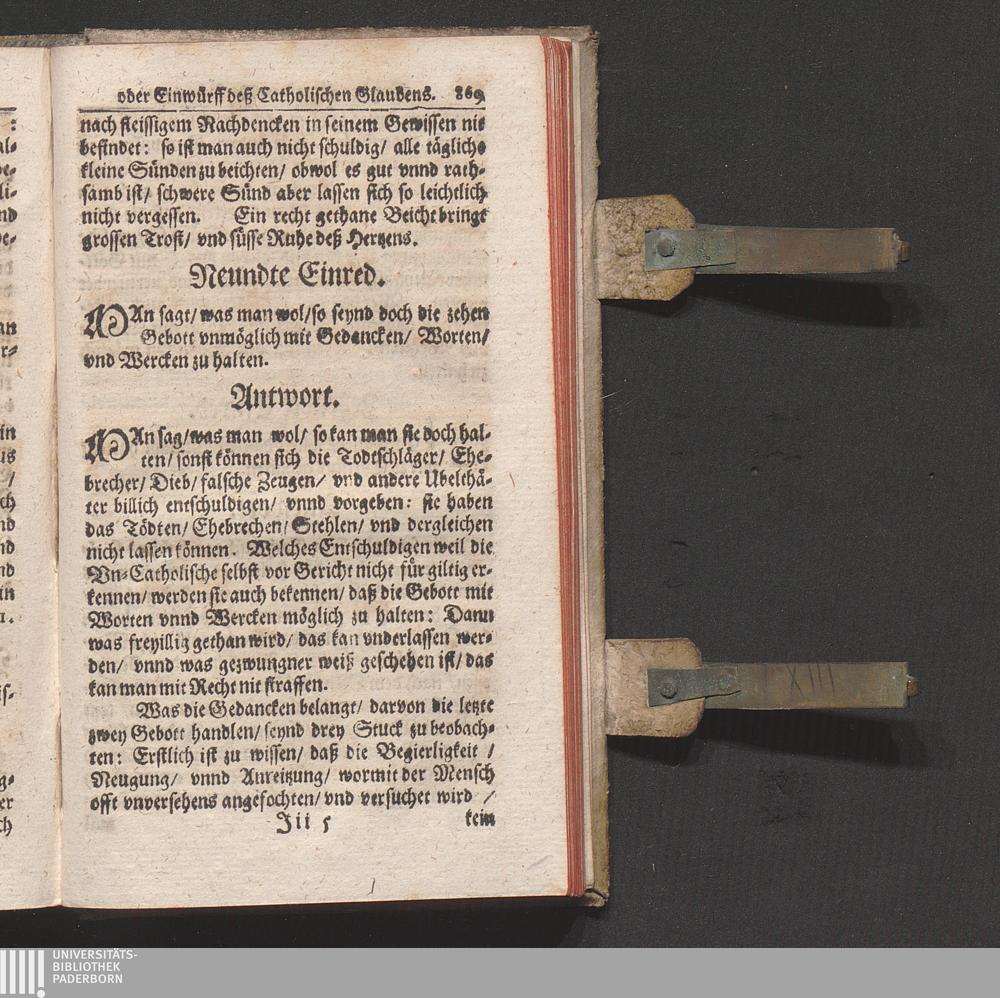 oder Einwürff deß Catholischen Glaubens. 869
nach fleissigem Nachdencken in seinem Gewissen nit
befindet: so ist man auch nicht schuldig/ alle tägliche
kleine Sünden zu beichten/ obwol es gut vnnd rath-
samb ist/ schwere Sünd aber lassen sich so leichtlich
nicht vergessen. Ein recht gethane Beicht bringt
grossen Trost/ vnd süsse Ruhe deß Hertzens.
Neundte Einred.
MAn sagt/ was man wol/ so seynd doch die zehen
Gebott vnmöglich mit Gedancken/ Worten/
vnd Wercken zu halten.
Antwort.
MAn sag/ was man wol/ so kan man sie doch hal-
ten/ sonst können sich die Todtschläger/ Ehe-
brecher/ Dieb/ falsche Zeugen/ vnd andere Ubelthä-
ter billich entschuldigen/ vnnd vorgeben: sie haben
das Tödten/ Ehebrechen/ Stehlen/ vnd dergleichen
nicht lassen können. Welches Entschuldigen weil die
Vn-Catholische selbst vor Gericht nicht für giltig er-
kennen/ werden sie auch bekennen/ daß die Gebott mit
Worten vnnd Wercken möglich zu halten: Dann
was freyillig gethan wird/ das kan vnderlassen wer-
den/ vnnd was gezwungner weiß geschehen ist/ das
kan man mit Recht nit straffen.
Was die Gedancken belangt/ darvon die letzte
zwey Gebott handlen/ seynd drey Stuck zu beobach-
ten: Erstlich ist zu wissen/ daß die Begierligkeit /
Neugung/ vnnd Anreitzung/ wormit der Mensch
offt vnversehens angefochten/ vnd versuchet wird /
Jii 5 kein
XIII
UNIVERSITÄTS-
BIBLIOTHEK
PADERBORN